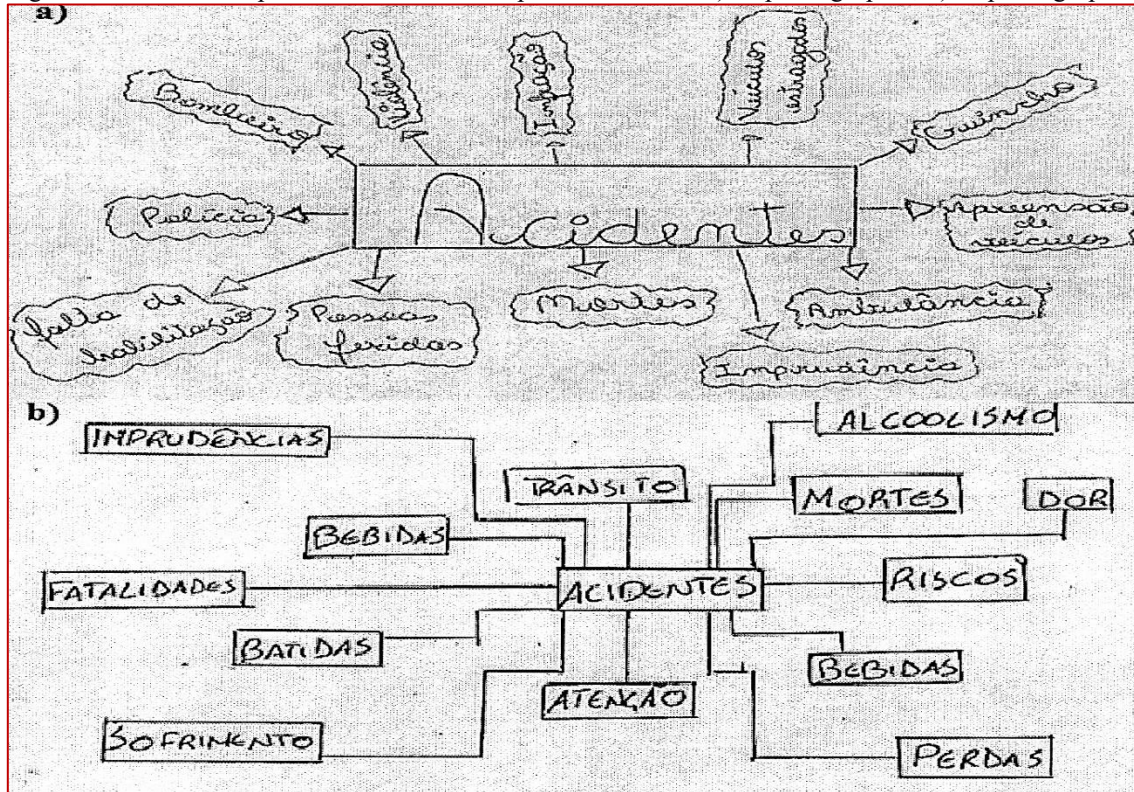 a)
Bombeiro
Violência
Infração
Veículos
estragados
Guincho
Polícia
Acidentes
Apreensão
de
veículos
falta de
habilitação
Pessoas
feridas
Mortes
Ambulância
Imprudência
b)
IMPRUDÊNCIAS
ALCOOLISMO
TRÂNSITO
MORTES
DOR
BEBIDAS
FATALIDADES
ACIDENTES
RISCOS
BATIDAS
BEBIDAS
ATENÇÃO
SOFRIMENTO
PERDAS